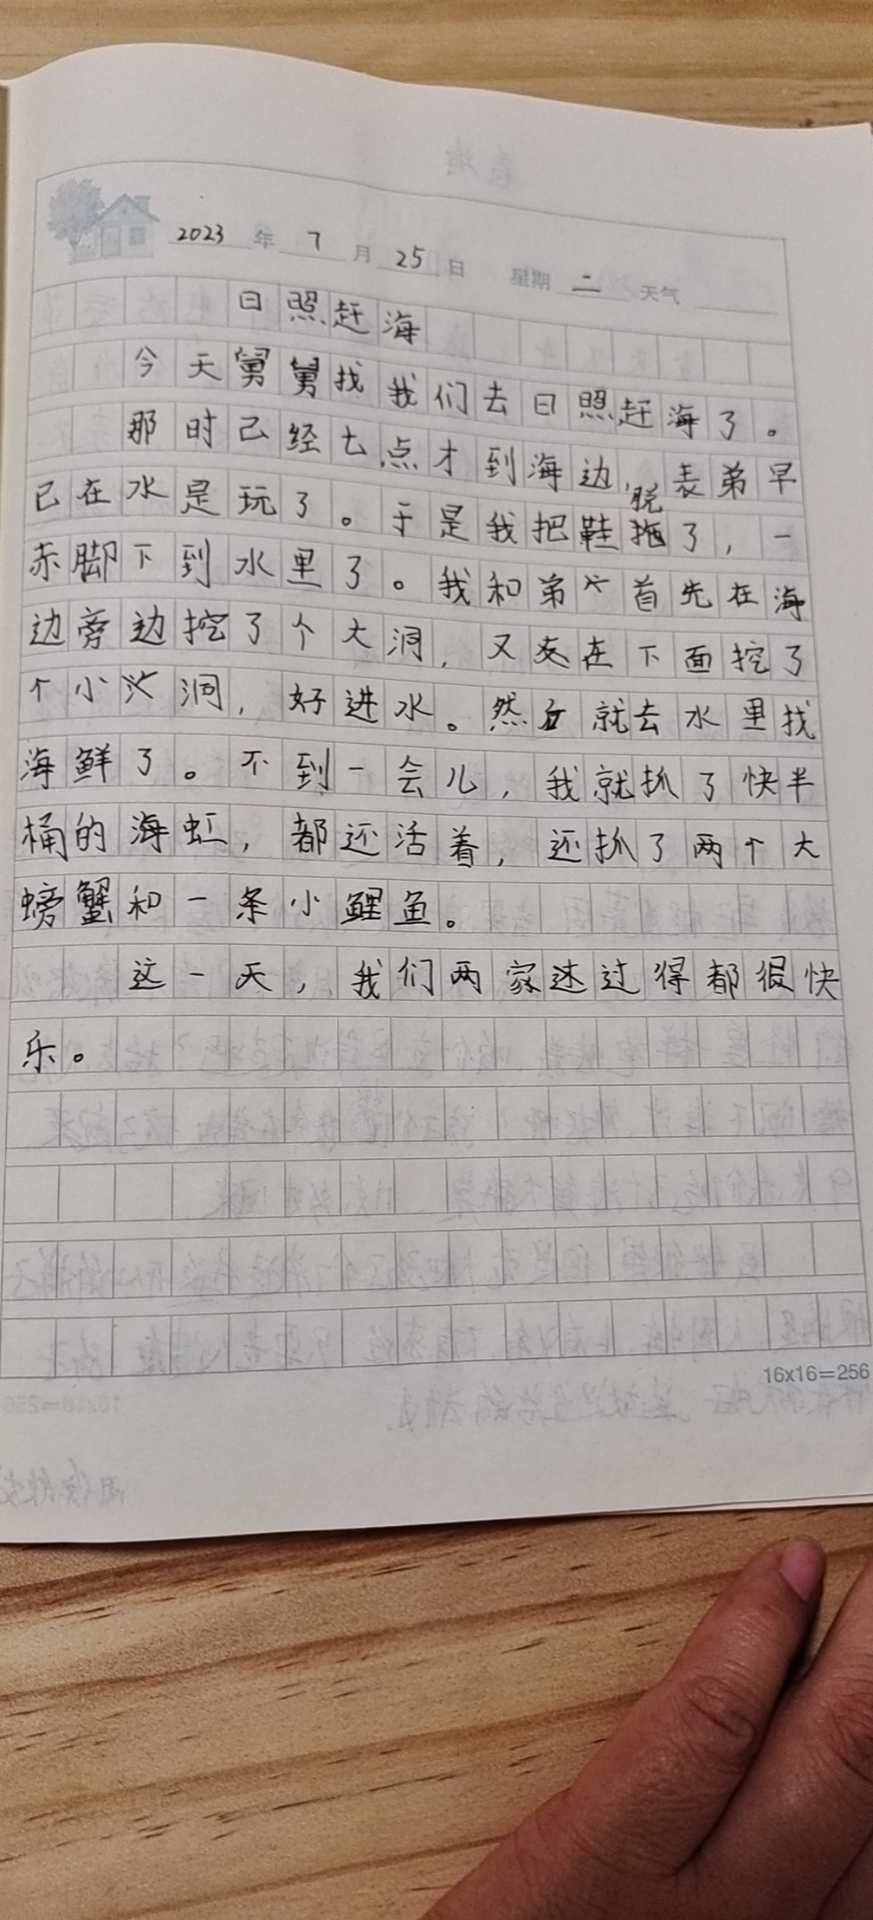 2023 年 7 月 25 日 星期 二 天气
日照赶海
今天舅舅找我们去日照赶海了。
那时已经七点才到海边,表弟早
已在水是玩了。于是我把鞋脱了,一
赤脚下到水里了。我和弟首先在海
边旁边挖了个大洞,又在下面挖了
个小洞,好进水。然后就去水里找
海鲜了。不到一会儿,我就抓了快半
桶的海虹,都还活着,还抓了两个大
螃蟹和一条小鲤鱼。
这一天,我们两家过得都很快
乐。
16x16=256